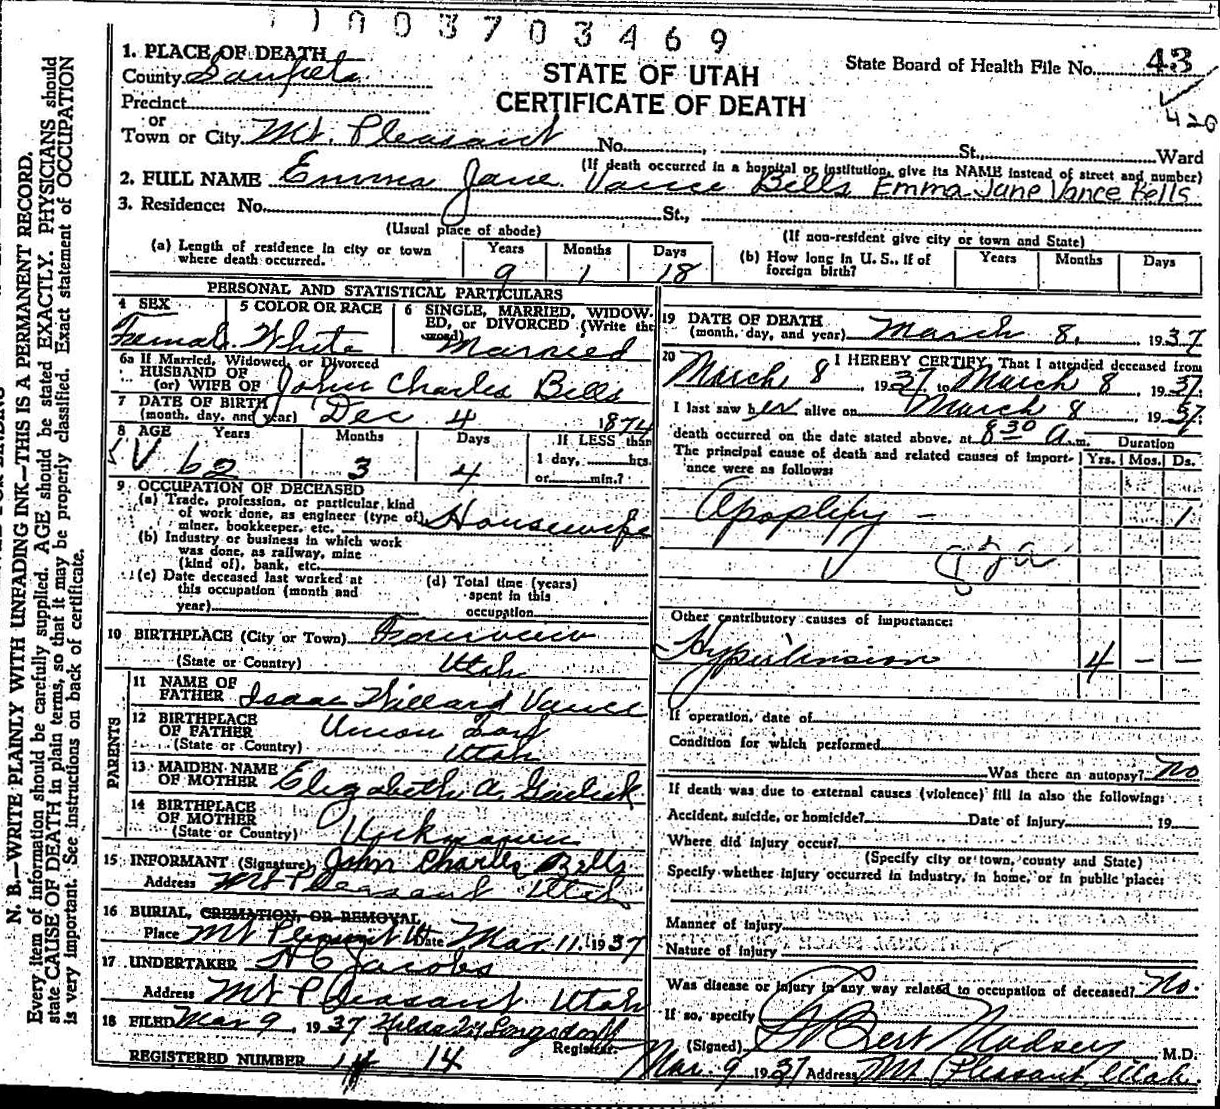 1003703469
1. PLACE OF DEATH
County Sanpete
STATE OF UTAH
CERTIFICATE OF DEATH
State Board of Health File No. 43
420
Precinct
or
Town or City Mt. Pleasant No. , St., Ward
(If death occurred in a hospital or institution, give its NAME instead of street and number)
2. FULL NAME Emma Jane Vance Bills Emma Jane Vance Bells
3. Residence: No. St.,
(Usual place of abode) (If non-resident give city or town and State)
(a) Length of residence in city or town where death occurred. Years 9 Months 1 Days 18
(b) How long in U. S., if of foreign birth? Years Months Days
PERSONAL AND STATISTICAL PARTICULARS
4 SEX Female
5 COLOR OR RACE White
6 SINGLE, MARRIED, WIDOWED, or DIVORCED (Write the word) Married
6a If Married, Widowed, or Divorced
HUSBAND OF
(or) WIFE OF John Charles Bills
7 DATE OF BIRTH
(month, day, and year) Dec 4 1874
8 AGE Years 62 Months 3 Days 4 If LESS than 1 day, hrs. or min.?
9 OCCUPATION OF DECEASED
(a) Trade, profession, or particular kind
of work done, as engineer (type of)
miner, bookkeeper, etc. Housewife
(b) Industry or business in which work
was done, as railway, mine
(kind of), bank, etc.
(c) Date deceased last worked at
this occupation (month and
year)
(d) Total time (years)
spent in this
occupation
10 BIRTHPLACE (City or Town)
(State or Country) Utah
PARENTS
11 NAME OF
FATHER Isaac Willard Vance
12 BIRTHPLACE
OF FATHER Union
(State or Country) Utah
13 MAIDEN NAME
OF MOTHER Elizabeth A. Garlick
14 BIRTHPLACE
OF MOTHER
(State or Country) Unknown
15 INFORMANT (Signature) John Charles Bills
Address Mt Pleasant Utah
16 BURIAL, CREMATION, OR REMOVAL
Place Mt Pleasant Ut Date Mar 11, 1937
17 UNDERTAKER Jacobs
Address Mt Pleasant Utah
18 FILED Mar 9, 1937 Hilda Longsdorf
Registrar.
REGISTERED NUMBER 14
19 DATE OF DEATH
(month, day, and year) March 8, 1937
20 I HEREBY CERTIFY, That I attended deceased from
March 8, 1937 to March 8, 1937
I last saw her alive on March 8, 1937
death occurred on the date stated above, at 8 30 A m.
Duration
The principal cause of death and related causes of importance were as follows: Yrs. Mos. Ds.
Apoplexy - 1
Other contributory causes of importance:
Hypertension 4 - -
If operation, date of
Condition for which performed
Was there an autopsy? No
If death was due to external causes (violence) fill in also the following:
Accident, suicide, or homicide? Date of injury 19
Where did injury occur?
(Specify city or town, county and State)
Specify whether injury occurred in industry, in home, or in public place:
Manner of injury
Nature of injury
Was disease or injury in any way related to occupation of deceased? No.
If so, specify
(Signed) Bert Madsen, M.D.
Mar. 9 1937 Address Mt Pleasant, Utah.
N. B.—WRITE PLAINLY WITH UNFADING INK—THIS IS A PERMANENT RECORD.
Every item of information should be carefully supplied. AGE should be stated EXACTLY. PHYSICIANS should
state CAUSE OF DEATH in plain terms, so that it may be properly classified. Exact statement of OCCUPATION
is very important. See instructions on back of certificate.